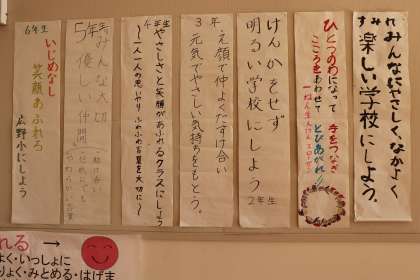 すみれ
みんなになかよく
楽しい学校にしよう。
ひとつのわになって
手をつなぎ
こころをあわせて
とびあがれ!!
けんかをせず
明るい学校にしよう
2年生
3年
え顔で仲よくたすけ合い
元気でやさしい気持ちをもとう。
4年生
やさしさと笑顔があふれるクラスにしよう
〜一人一人の思いやり ふわふわ言葉を大切に〜
5年生
みんな大切
優しい仲間
6年生
いじめなし
笑顔あふれる
広野小にしよう
れる →
よく・いっしょに
りょく・みとめる・はげま